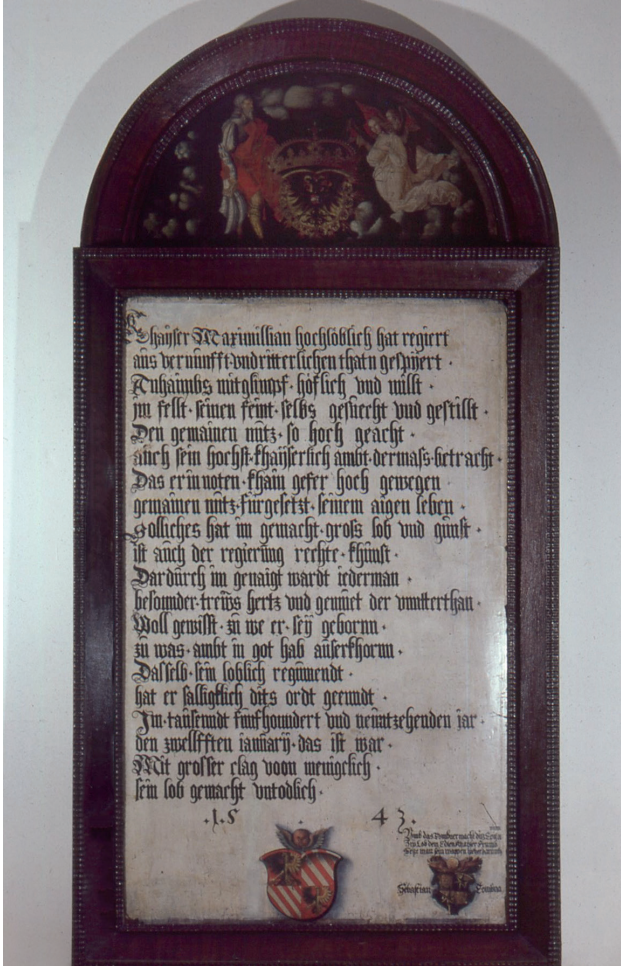 Khaÿser Maximillian hochlöblich hat regiert
aus vernunfft vnd ritterlichen thatn gespyert ·
Anhaimbs mit glimpf · höflich vnd millt ·
jm fellt · seinen feint · selbs gesuecht vnd gestillt ·
Den gemainen nutz · so hoch geacht ·
auch sein hochst · khaÿserlich ambt · dermass · betracht ·
Das er in noten · khain gefer hoch gewegen ·
gemainen nutz · fürgesetzt · seinem aigen leben ·
Solliches hat im gemacht · gross lob vnd gunst ·
ist auch der regierung rechte · khunst ·
Dardurch im genaigt wardt iederman ·
besonnder · trews hertz vnd gemuet der vnntterthan ·
Woll gewisst · zu we er · seÿ geborn ·
zu was · ambt in got hab auserkhorn ·
Dasselb · sein loblich regiment ·
hat er salligklich dits ordt geenndt ·
Jm · taüsenndt funfhoundert vnd nenntzehenden iar ·
den zwellfften ianuarÿ · das ist war ·
Mit grosser clag voon menigclich ·
sein lob gemacht vntodlich ·
· 1 · 5 · 4 3 ·
Sebastian